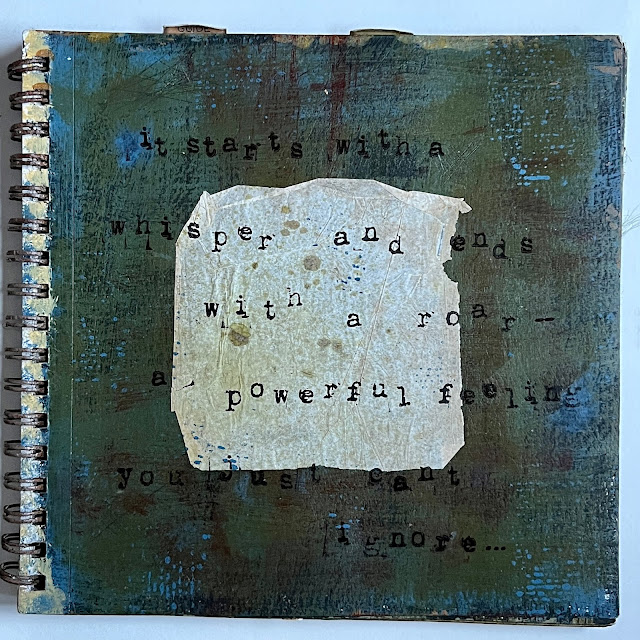 GUIDE
it starts with a
whisper and ends
with a roar—
a powerful feeling
you just cant
ignore...